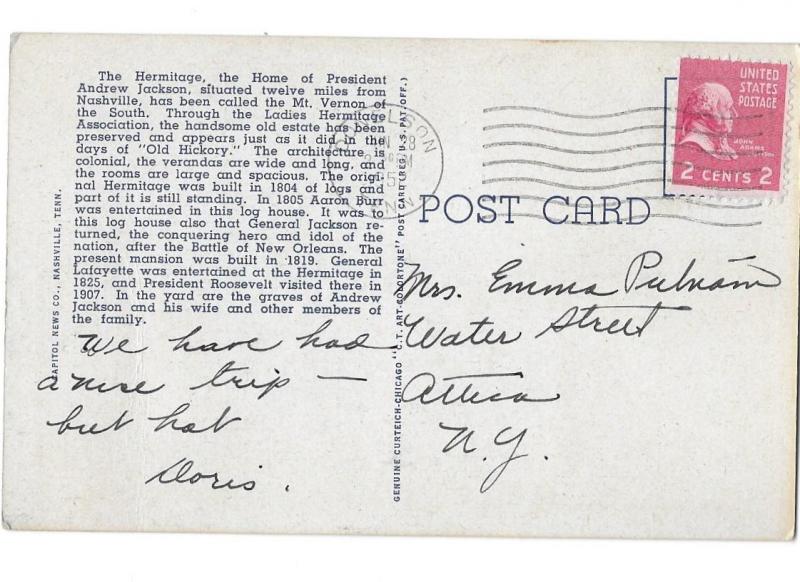 The Hermitage, the Home of President
Andrew Jackson, situated twelve miles from
Nashville, has been called the Mt. Vernon of
the South. Through the Ladies Hermitage
Association, the handsome old estate has been
preserved and appears just as it did in the
days of "Old Hickory." The architecture is
colonial, the verandas are wide and long, and
the rooms are large and spacious. The origi-
nal Hermitage was built in 1804 of logs and
part of it is still standing. In 1805 Aaron Burr
was entertained in this log house. It was to
this log house also that General Jackson re-
turned, the conquering hero and idol of the
nation, after the Battle of New Orleans. The
present mansion was built in 1819. General
Lafayette was entertained at the Hermitage in
1825, and President Roosevelt visited there in
1907. In the yard are the graves of Andrew
Jackson and his wife and other members of
the family.
CAPITOL NEWS CO., NASHVILLE, TENN.
We have had
a nise trip —
but hot
Doris.
GENUINE CURTEICH-CHICAGO "C.T. ART-COLORTONE" POST CARD (REG. U.S. PAT. OFF.)
POST CARD
UNITED
STATES
POSTAGE
JOHN
ADAMS
2 CENTS 2
Mrs. Emma Putnam
Water Street
Attica
N.Y.